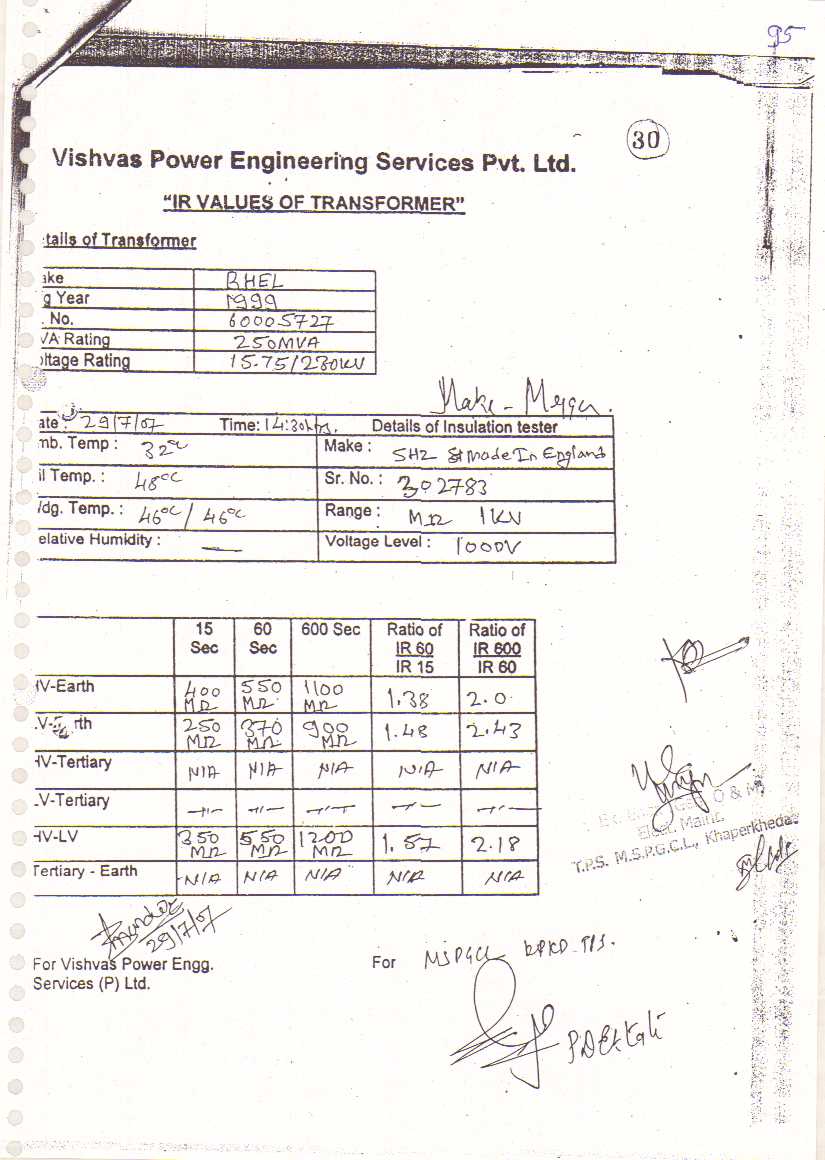 95
30
Vishvas Power Engineering Services Pvt. Ltd.
"IR VALUES OF TRANSFORMER"
tails of Transformer
ake BHEL
g Year 1999
. No. 60005727
VA Rating 250MVA
oltage Rating 15.75/230KV
Make - Megger.
ate : 29/7/07 Time: 14:30hrs. Details of Insulation tester
mb. Temp : 32°C Make : SH2 Made In England
il Temp. : 48°C Sr. No. : 302783
dg. Temp. : 46°C / 46°C Range : MΩ 1KV
elative Humidity : — Voltage Level : 1000V
15 Sec 60 Sec 600 Sec Ratio of IR 60 IR 15 Ratio of IR 600 IR 60
HV-Earth 400 MΩ 550 MΩ 1100 MΩ 1.38 2.0
LV-Earth 250 MΩ 370 MΩ 900 MΩ 1.48 2.43
HV-Tertiary N/A N/A N/A N/A N/A
LV-Tertiary —〃— —〃— —〃— —〃— —〃—
HV-LV 350 MΩ 550 MΩ 1200 MΩ 1.57 2.18
Tertiary - Earth N/A N/A N/A N/A N/A
O & M
Elect. Maint.
T.P.S. M.S.P.G.C.L., Khaperkheda
29/7/07
For Vishvas Power Engg. For MSPGCL KPKD TPS.
Services (P) Ltd.